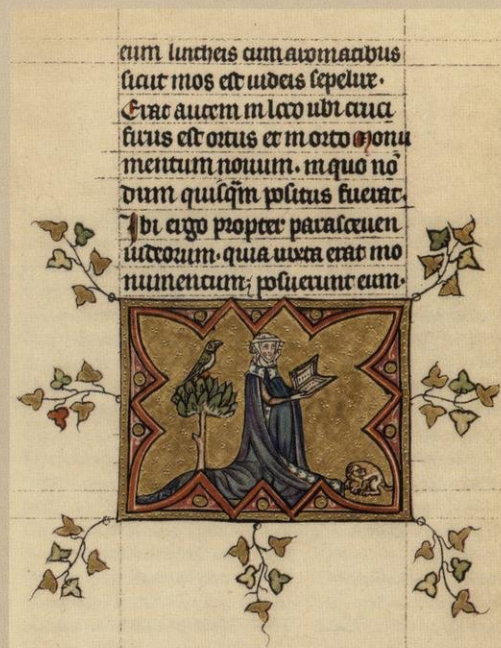 eum lintheis cum aromatibus
sicut mos est iudeis sepelire.
Erat autem in loco ubi cruci
fixus est ortus et in orto Monu
mentum nouum. in quo nō
dum quisq̃m positus fuerat.
Ibi ergo propter parasceuen
iudeorum. quia iuxta erat mo
numentum; posuerunt eum.